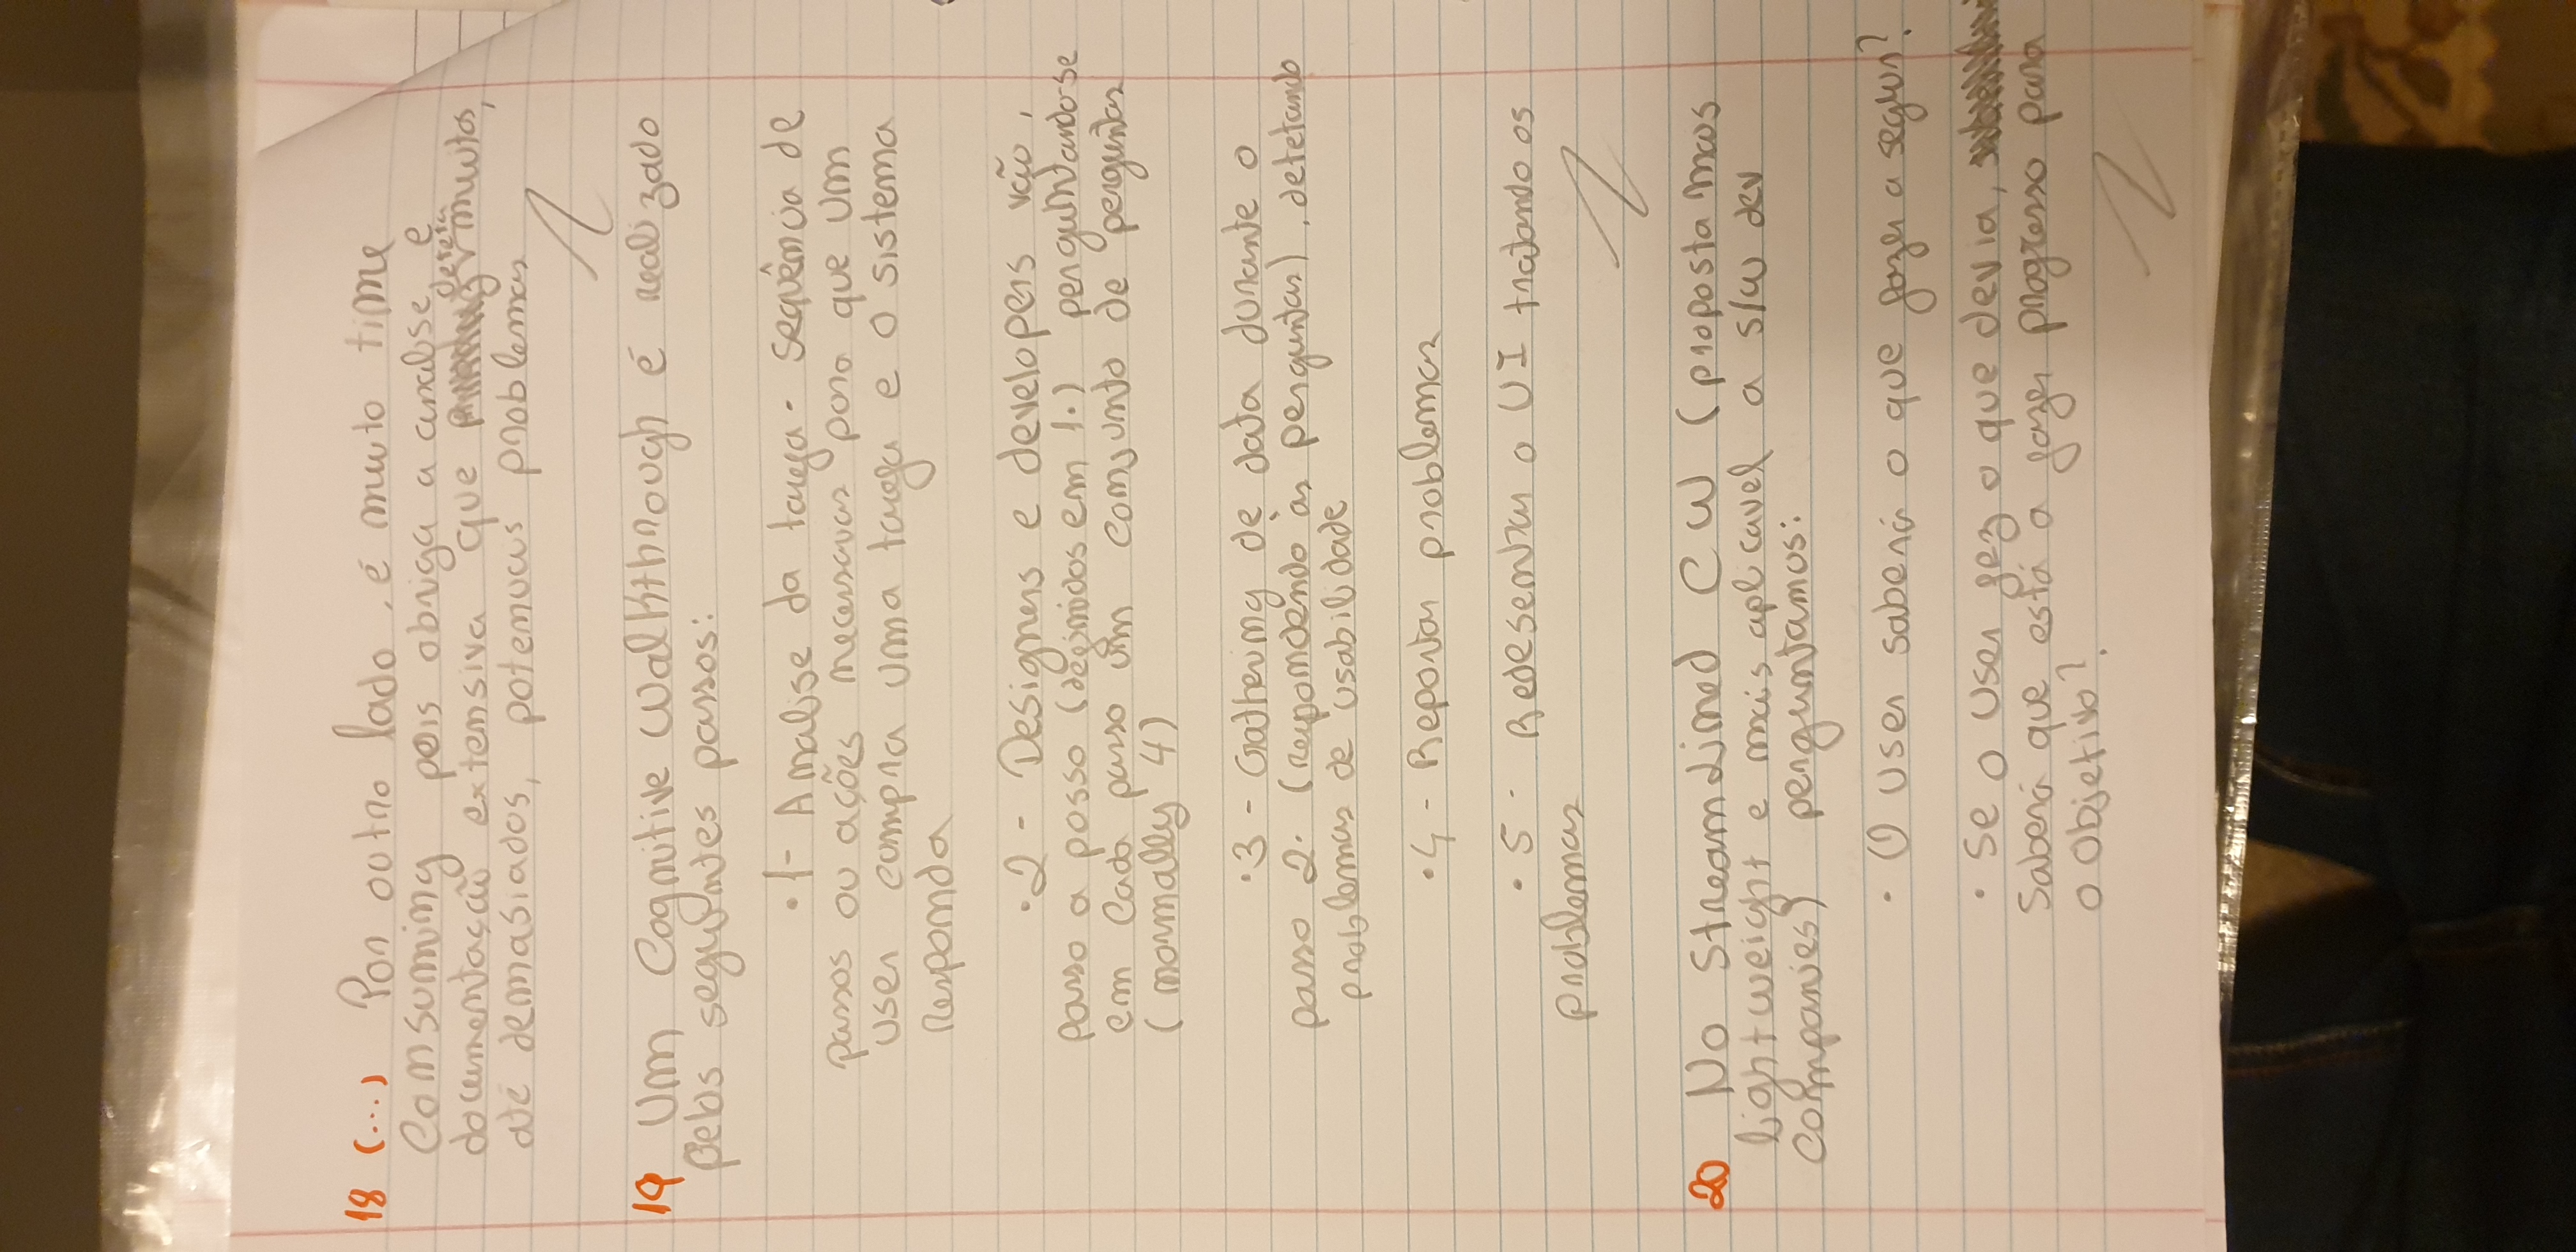 18 (...) Por outro lado, é muito time
consuming pois obriga a analise e
documentação extensiva que deteta muitos,
até demasiados, potenciais problemas
19 Um Cognitive Walkthrough é realizado
pelos seguintes passos:
• 1 - Analise da tarefa - sequência de
passos ou ações necessarias para que um
user cumpra uma tarefa e o sistema
responda
• 2 - Designers e developers vão,
passo a passo (definidos em 1.) perguntando-se
em cada passo um conjunto de perguntas
(normally 4)
• 3 - Gathering de data durante o
passo 2. (respondendo às perguntas), detetando
problemas de usabilidade
• 4 - Reportar problemas
• 5 - Redesenhar o UI tratando os
problemas
20 No Streamlined CW (proposta mais
lightweight e mais aplicavel a s/w dev
companies) perguntamos:
• O user saberá o que fazer a seguir?
• Se o user fez o que devia,
saberá que está a fazer progresso para
o objetivo?